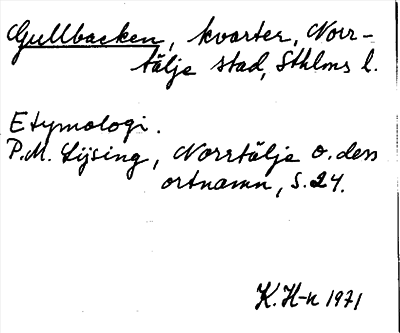 Gullbacken, kvarter, Norr-
tälje stad, Sthlms l.
Etymologi.
P.M. Lijsing, Norrtälje o. dess
ortnamn, s. 24.
K. H-n 1971